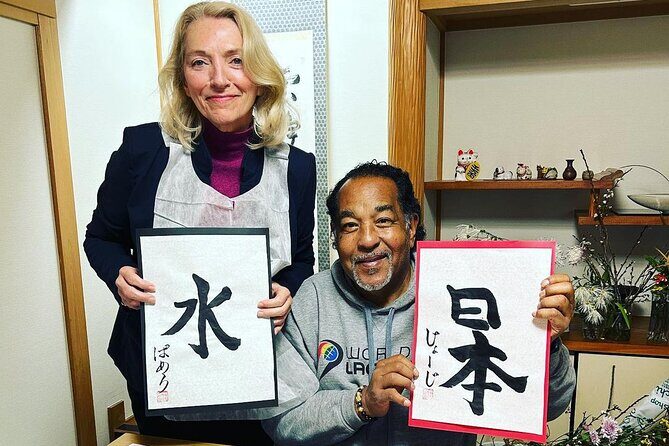 水
ぱめら
日本
じょーじ